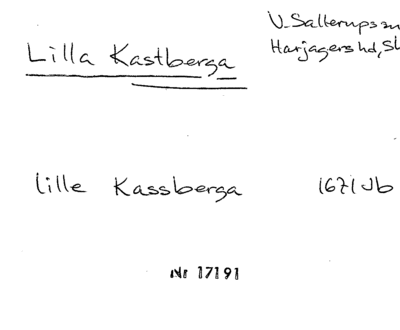 V. Sallerups sn
Harjagers hd, Sk
Lilla Kastberga
lille Kassberga 1671 Jb
Nr 17191